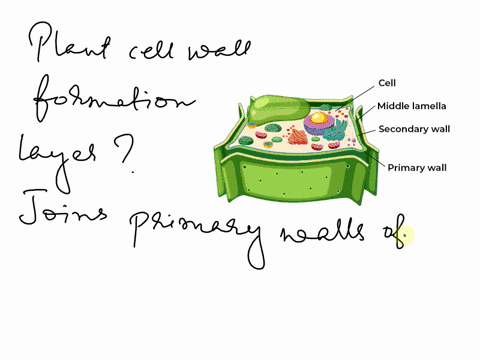 Plant cell wall
formation
layer?
Joins primary walls of
Cell
Middle lamella
Secondary wall
Primary wall